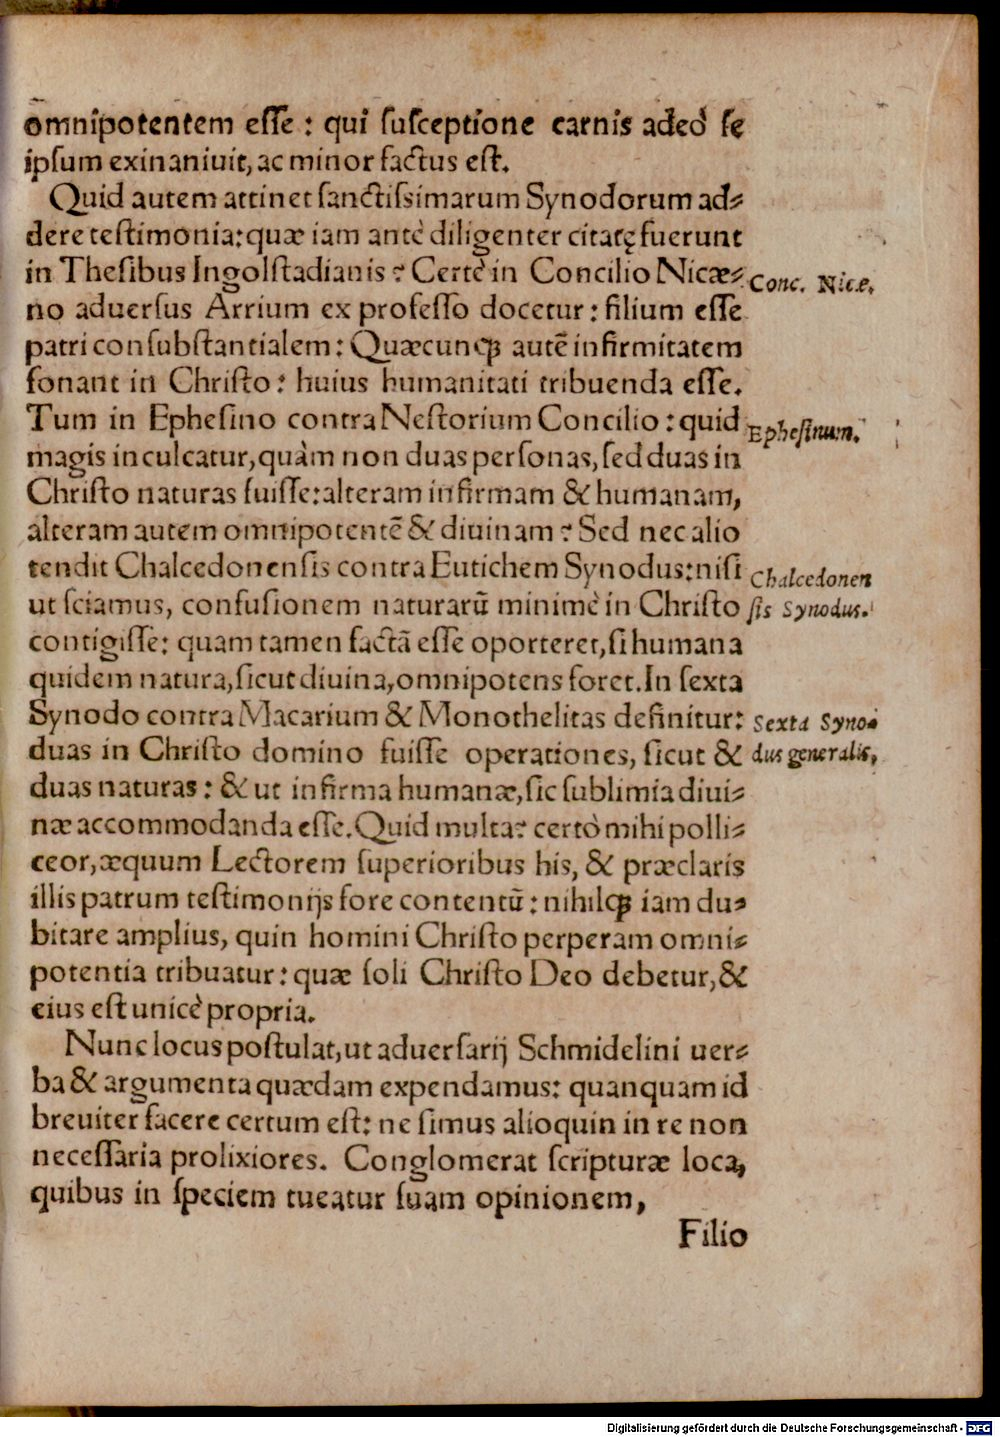 omnipotentem eſſe : qui ſuſceptione carnis adeò ſe
ipſum exinaniuit, ac minor factus eſt.
Quid autem attinet ſanctiſsimarum Synodorum ad⸗
dere teſtimonia: quæ iam antè diligenter citatę fuerunt
in Theſibus Ingolſtadianis? Certè in Concilio Nicæ⸗
Conc. Nicæ.
no aduerſus Arrium ex profeſſo docetur: filium eſſe
patri conſubſtantialem: Quæcunqꝫ autē infirmitatem
ſonant in Chriſto: huius humanitati tribuenda eſſe.
Tum in Epheſino contra Neſtorium Concilio: quid
Epheſinum.
magis inculcatur, quàm non duas perſonas, ſed duas in
Chriſto naturas fuiſſe: alteram infirmam & humanam,
alteram autem omnipotentē & diuinam? Sed nec alio
tendit Chalcedonenſis contra Eutichem Synodus: niſi
Chalcedonen
ut ſciamus, confuſionem naturarū minimè in Chriſto
ſis Synodus.
contigiſſe: quam tamen factā eſſe oporteret, ſi humana
quidem natura, ſicut diuina, omnipotens foret. In ſexta
Synodo contra Macarium & Monothelitas definitur:
Sexta Syno⸗
duas in Chriſto domino fuiſſe operationes, ſicut &
dus generalis,
duas naturas: & ut infirma humanæ, ſic ſublimia diui⸗
næ accommodanda eſſe. Quid multa? certò mihi polli⸗
ceor, æquum Lectorem ſuperioribus his, & præclaris
illis patrum teſtimonijs fore contentū: nihilqꝫ iam du⸗
bitare amplius, quin homini Chriſto perperam omni⸗
potentia tribuatur: quæ ſoli Chriſto Deo debetur, &
eius eſt unicè propria.
Nunc locus poſtulat, ut aduerſarij Schmidelini uer⸗
ba & argumenta quædam expendamus: quanquam id
breuiter facere certum eſt: ne ſimus alioquin in re non
neceſſaria prolixiores. Conglomerat ſcripturæ loca,
quibus in ſpeciem tueatur ſuam opinionem,
Filio
Digitalisierung gefördert durch die Deutsche Forschungsgemeinschaft - DFG